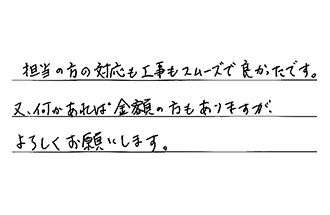 担当の方の対応も工事もスムーズで良かったです。
又、何かあれば金額の方もありますが、
よろしくお願いします。